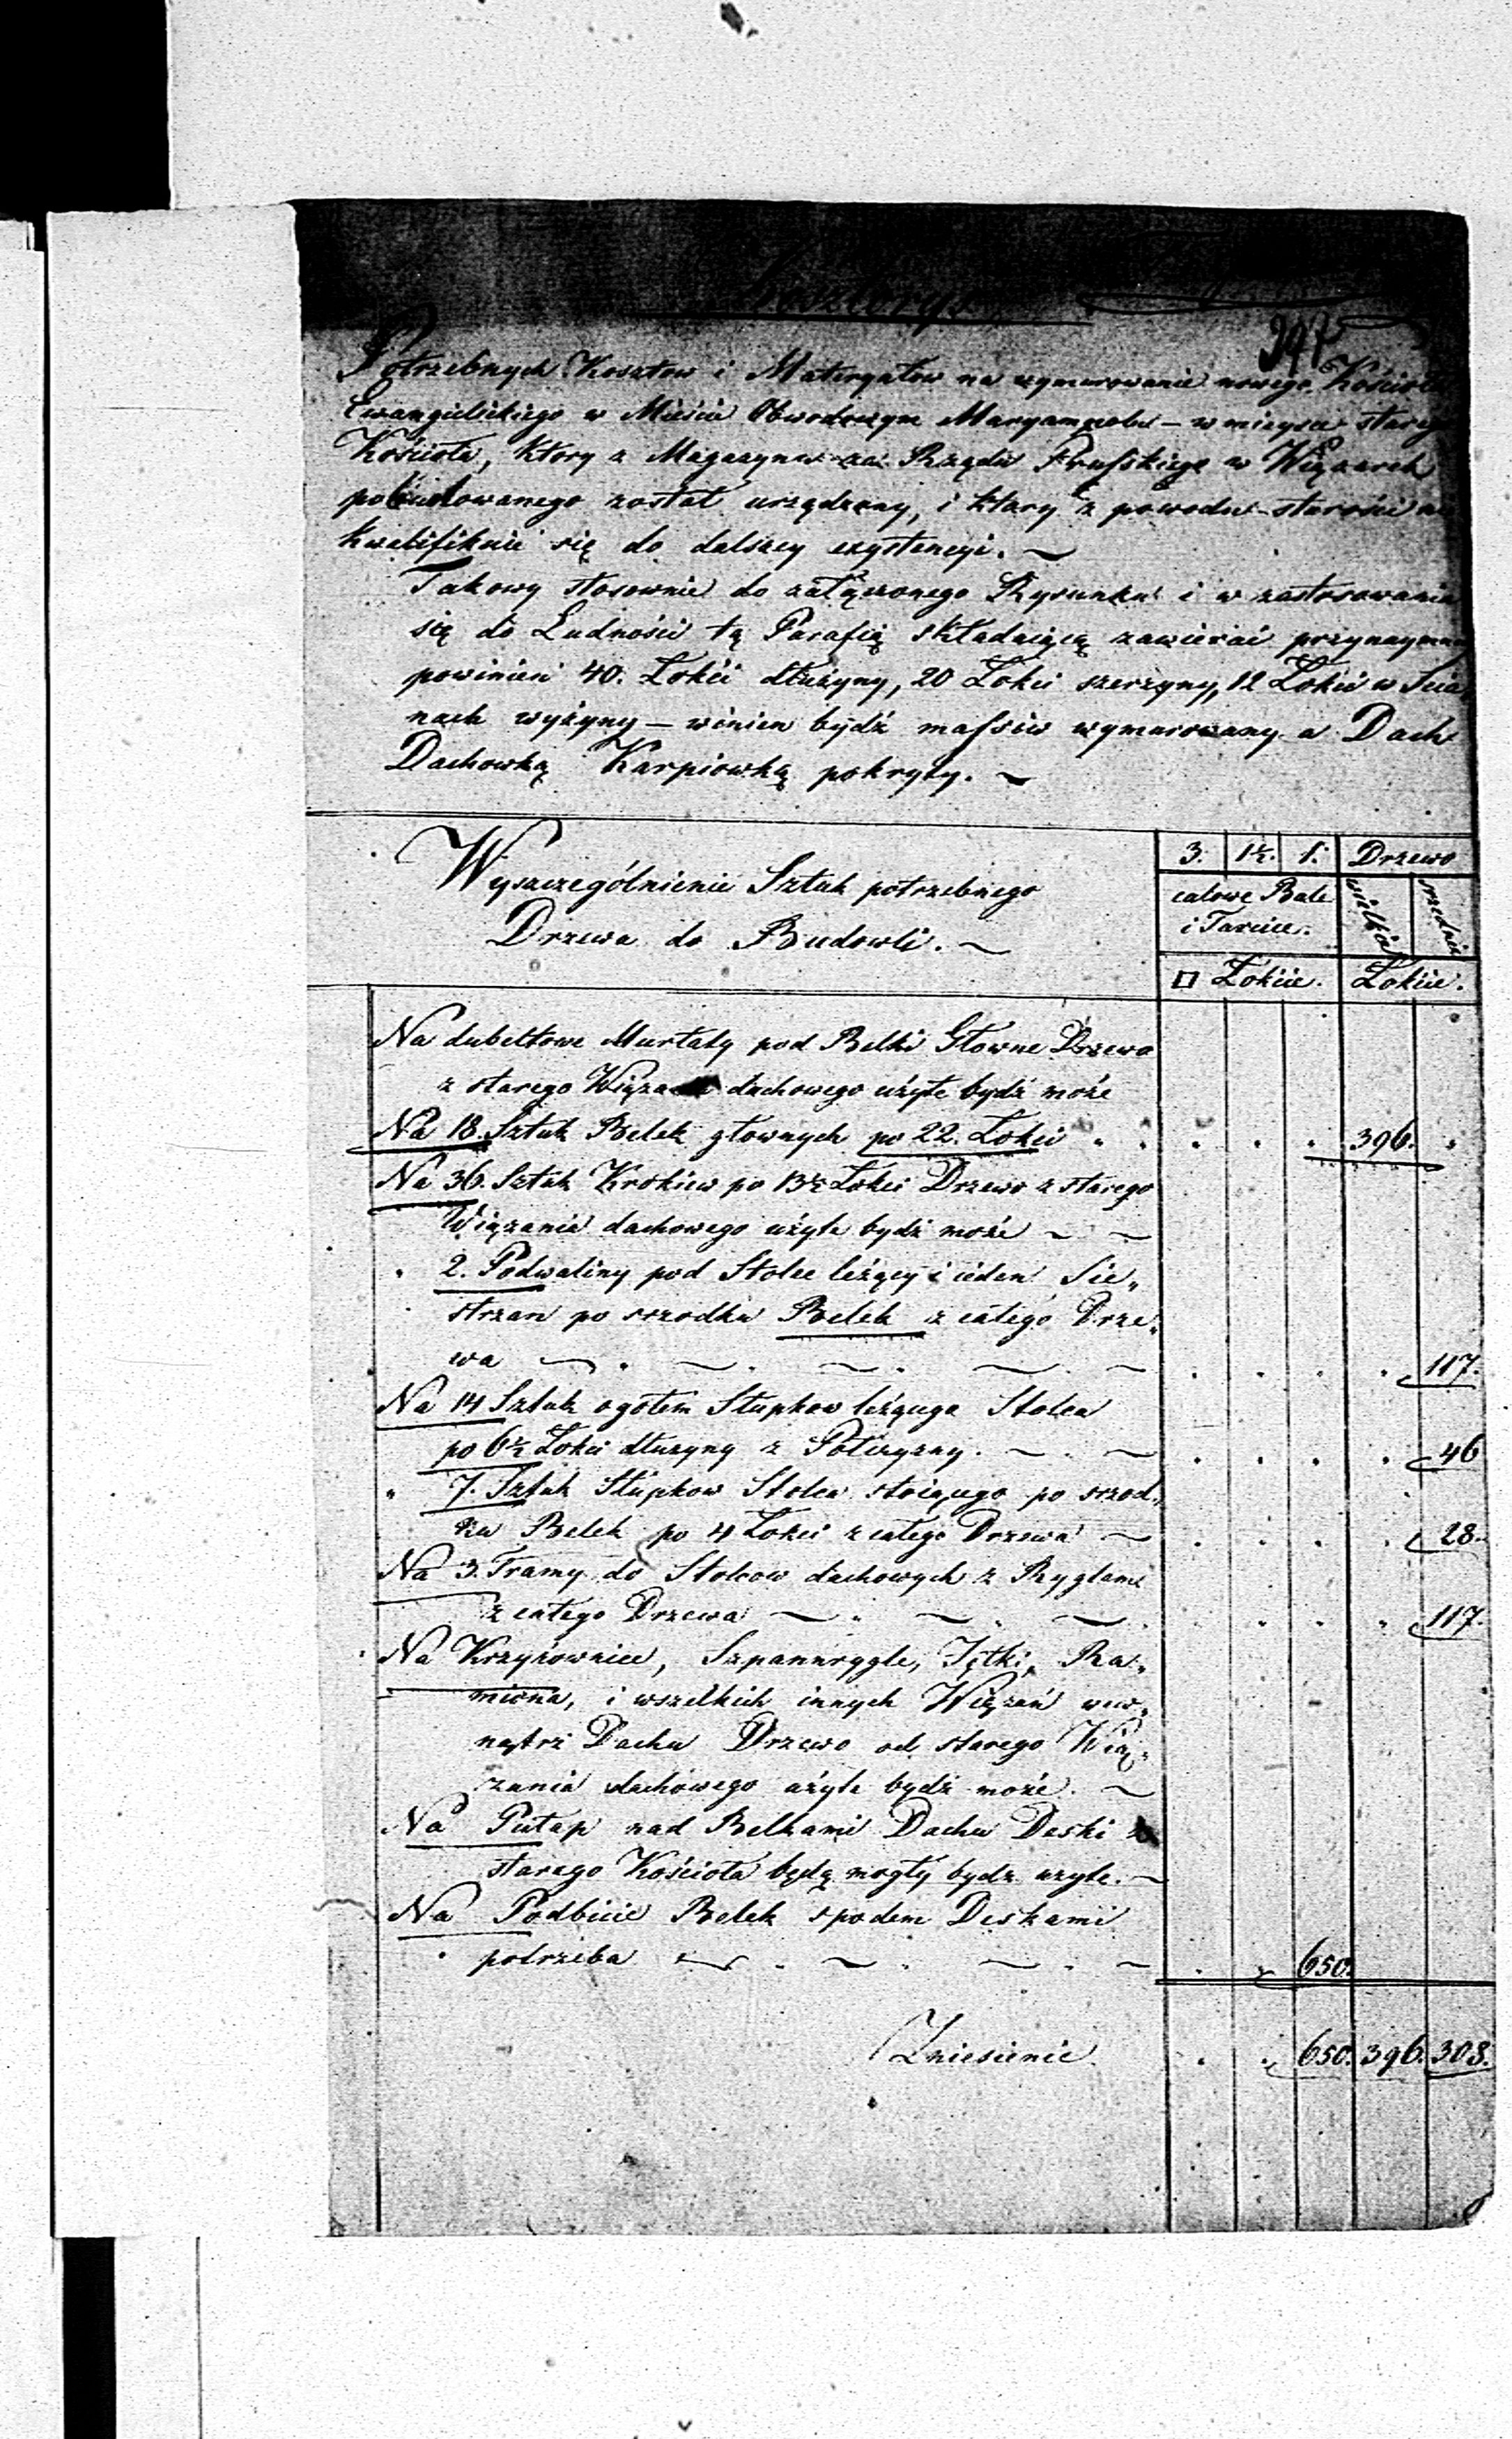 Kosztorys
Potrzebnych Kosztow i Materyałow na wymurowanie nowego Kościoła
Ewangielickiego w Mieście Obwodowym Maryampolu – w mieyscu starego
Kościoła, ktory z Magazynu za Rządu Pruſskiego w Wiązarek
pobudowanego został urządzony, i ktory z powodu starości nie
kwalifikuie się do dalszey exystencyi. ~
Takowy stosownie do załączonego Rysunku i w zastosowaniu
się do Ludności tą Parafią składaiącą zawierać przynaymniey
powinien 40. Łokci dłużyny, 20 Łokci szerzyny, 12 Łokci w Scia
nach wyżyny – winien bydź maſsiw wymurowany a Dach
Dachowką Karpiowką pokryty. ~
Wyszczególnienie Sztuk potrzebnego
Drzewa do Budowli. ~
3. 1½. 1. Drzewo
calowe Bale i Tarcice. wielkie srzednie
□ Łokcie. Łokcie.
Na dubeltowe Murłaty pod Belki Głowne Drzewo
z starego Wiązania dachowego użyte bydź może
Na 18. Sztuk Belek głownych po 22. Łokci 396.
Na 36. Sztuk Krokiew po 13½ Łokci Drzewo z starego
Wiązania dachowego użyte bydź może ~ ~
" 2. Podwaliny pod Stolce leżący i ieden Sie„
strzan po srzodku Belek z całego Drze„
wa 117.
Na 14 Sztuk ogołem Słupkow leżącego Stolca
po 6½ Łokci dłużyny z Połcyzny. 46
" 7. Sztuk Słupkow Stolca stoiącego po srzod„
ku Belek po 4 Łokci z całego Drzewa ~ 28.
Na 3. Tramy do Stolcow dachowych z Ryglami
z całego Drzewa 117.
Na Krzyżownice, Szpannrygle, Jętki, Ra„
miona, i wszelkich innych Wiązań wew„
nątrz Dachu Drzewo od starego Wią„
zania dachowego użyte bydź może. ~
Na Pułap nad Belkami Dachu Deski z
starego Kościoła będą mogły bydz użyte. ~
Na Podbicie Belek spodem Deskami
potrzeba 650.
Zniesienie 650. 396. 308.